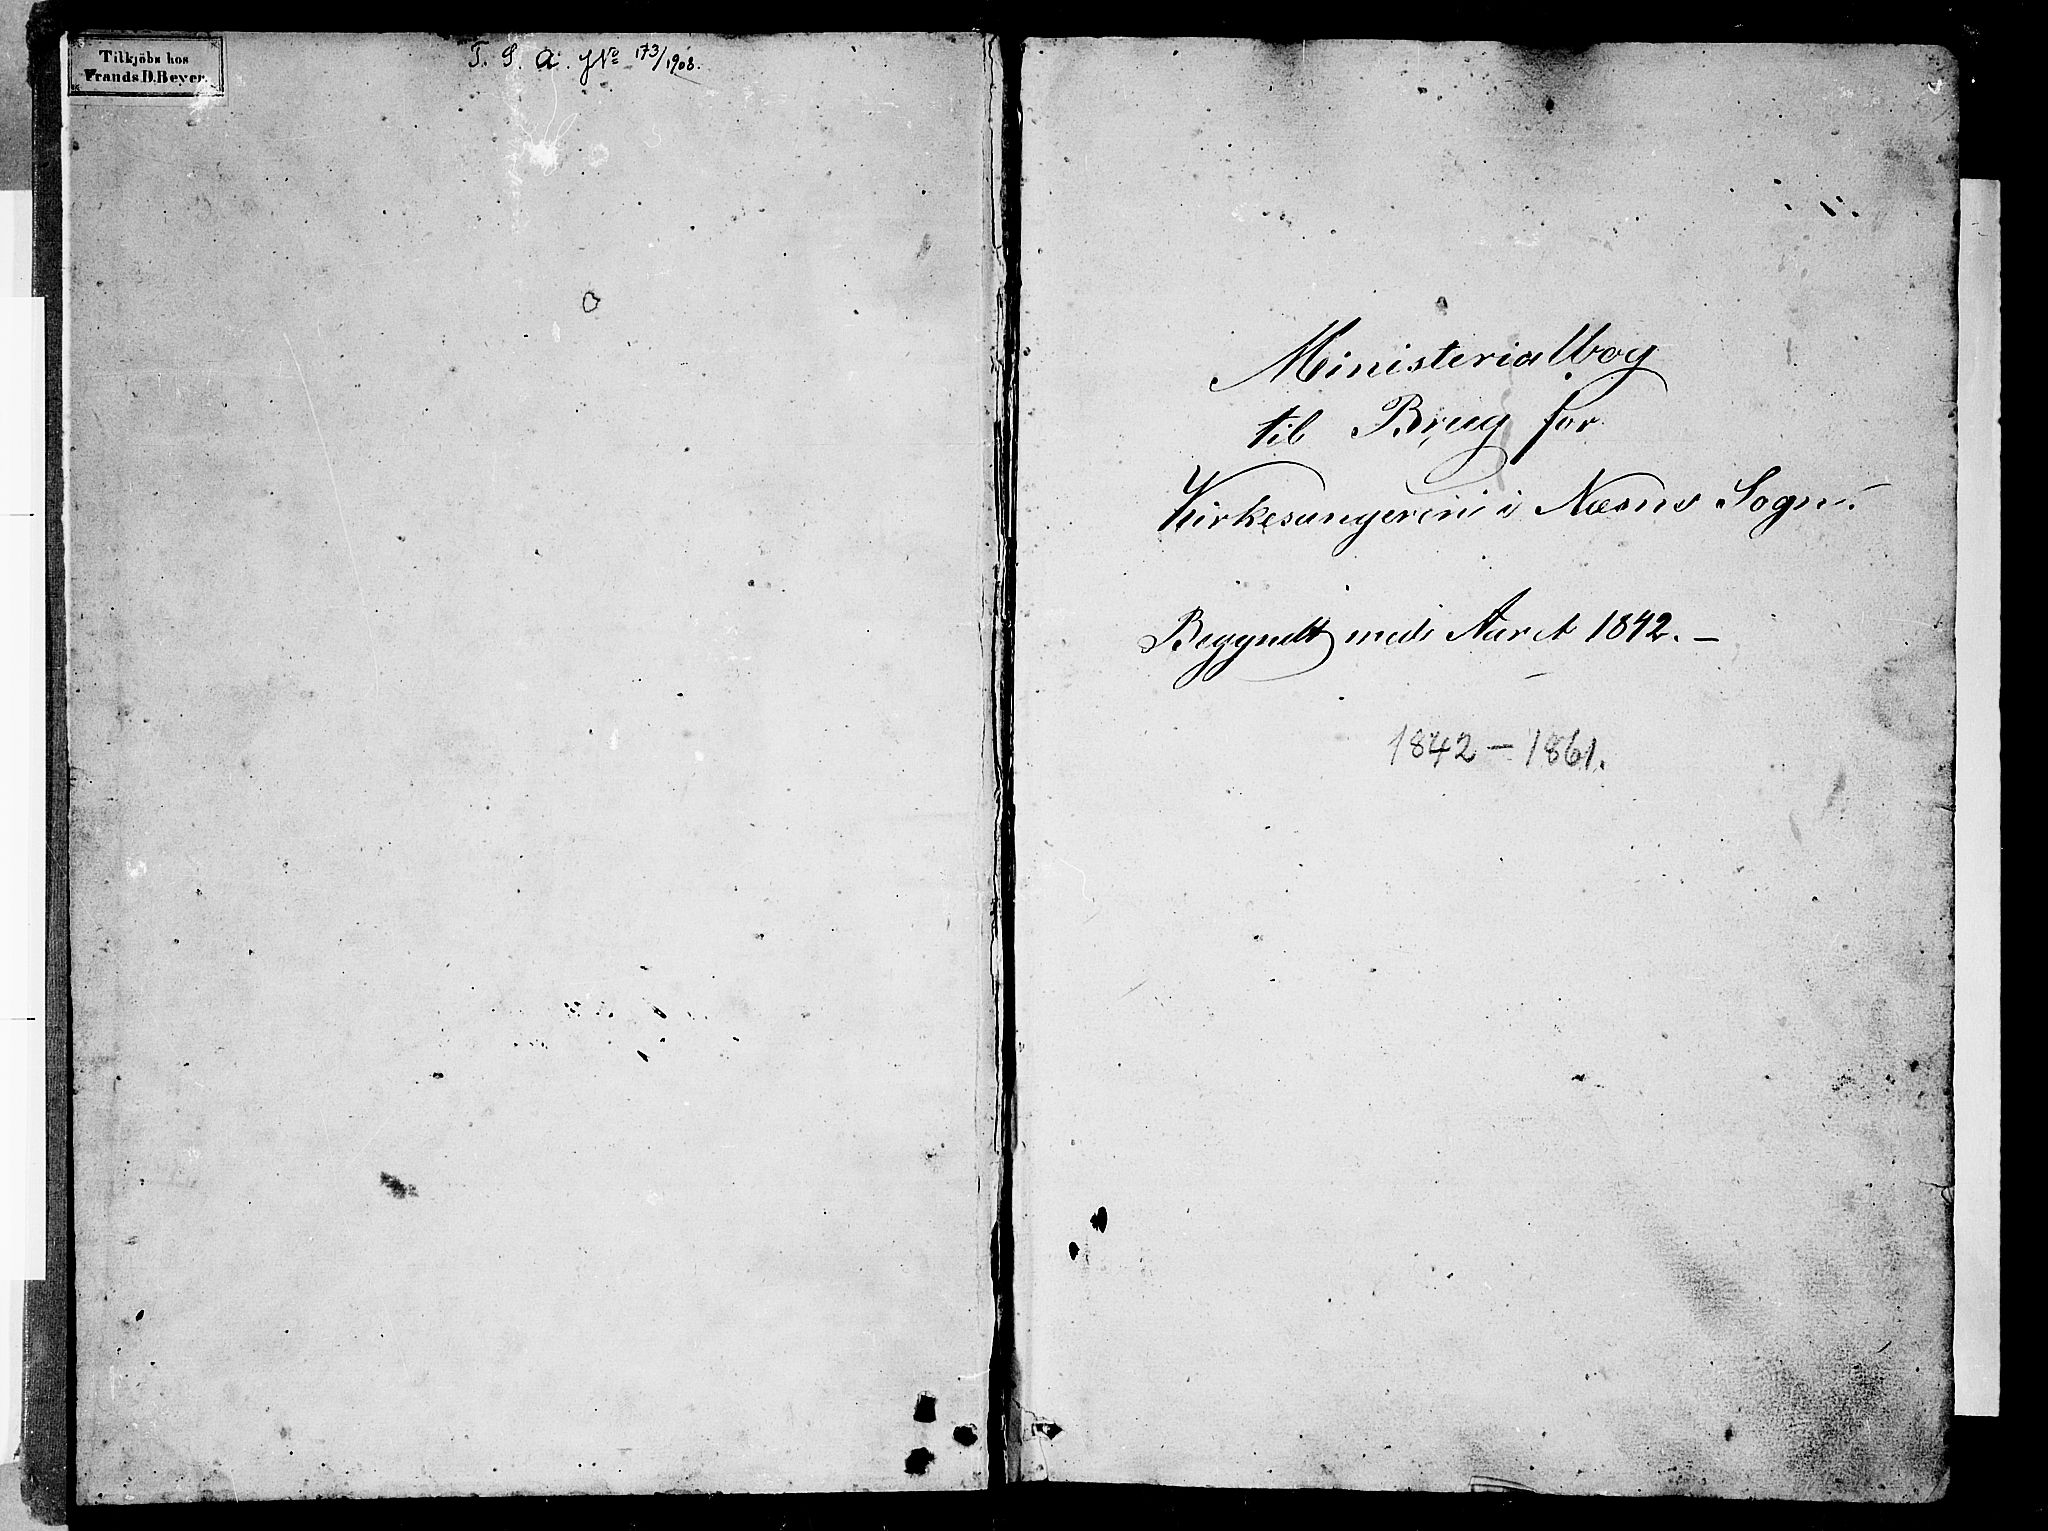 Tilkjöbs hos
Frands D. Beyer.
T. S. A. JNo 173/1908.
Ministerialbog
til Brug for
Kirkesangeren i Næsne Sogn.
Begyndt med Aaret 1842. –
1842 – 1861.